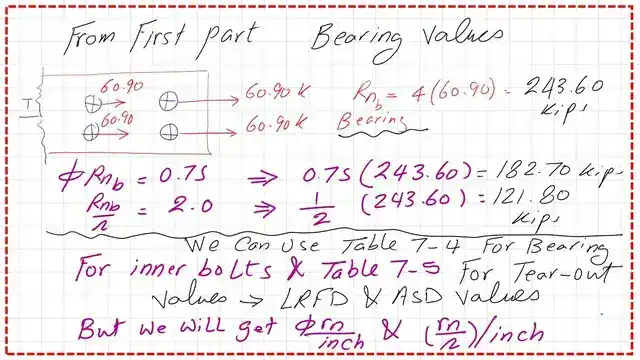 From First part Bearing values
60.90
60.90 K
T
60.90
60.90 K
Rnb = 4 (60.90) = 243.60 kips
Bearing
ΦRnb = 0.75 ⇒ 0.75 (243.60) = 182.70 kips
Rnb/Ω = 2.0 ⇒ 1/2 (243.60) = 121.80 kips
We Can Use Table 7-4 For Bearing
For inner bolts & Table 7-5 For Tear-out
values → LRFD & ASD values
But we will get Φrn/inch & (rn/Ω)/inch